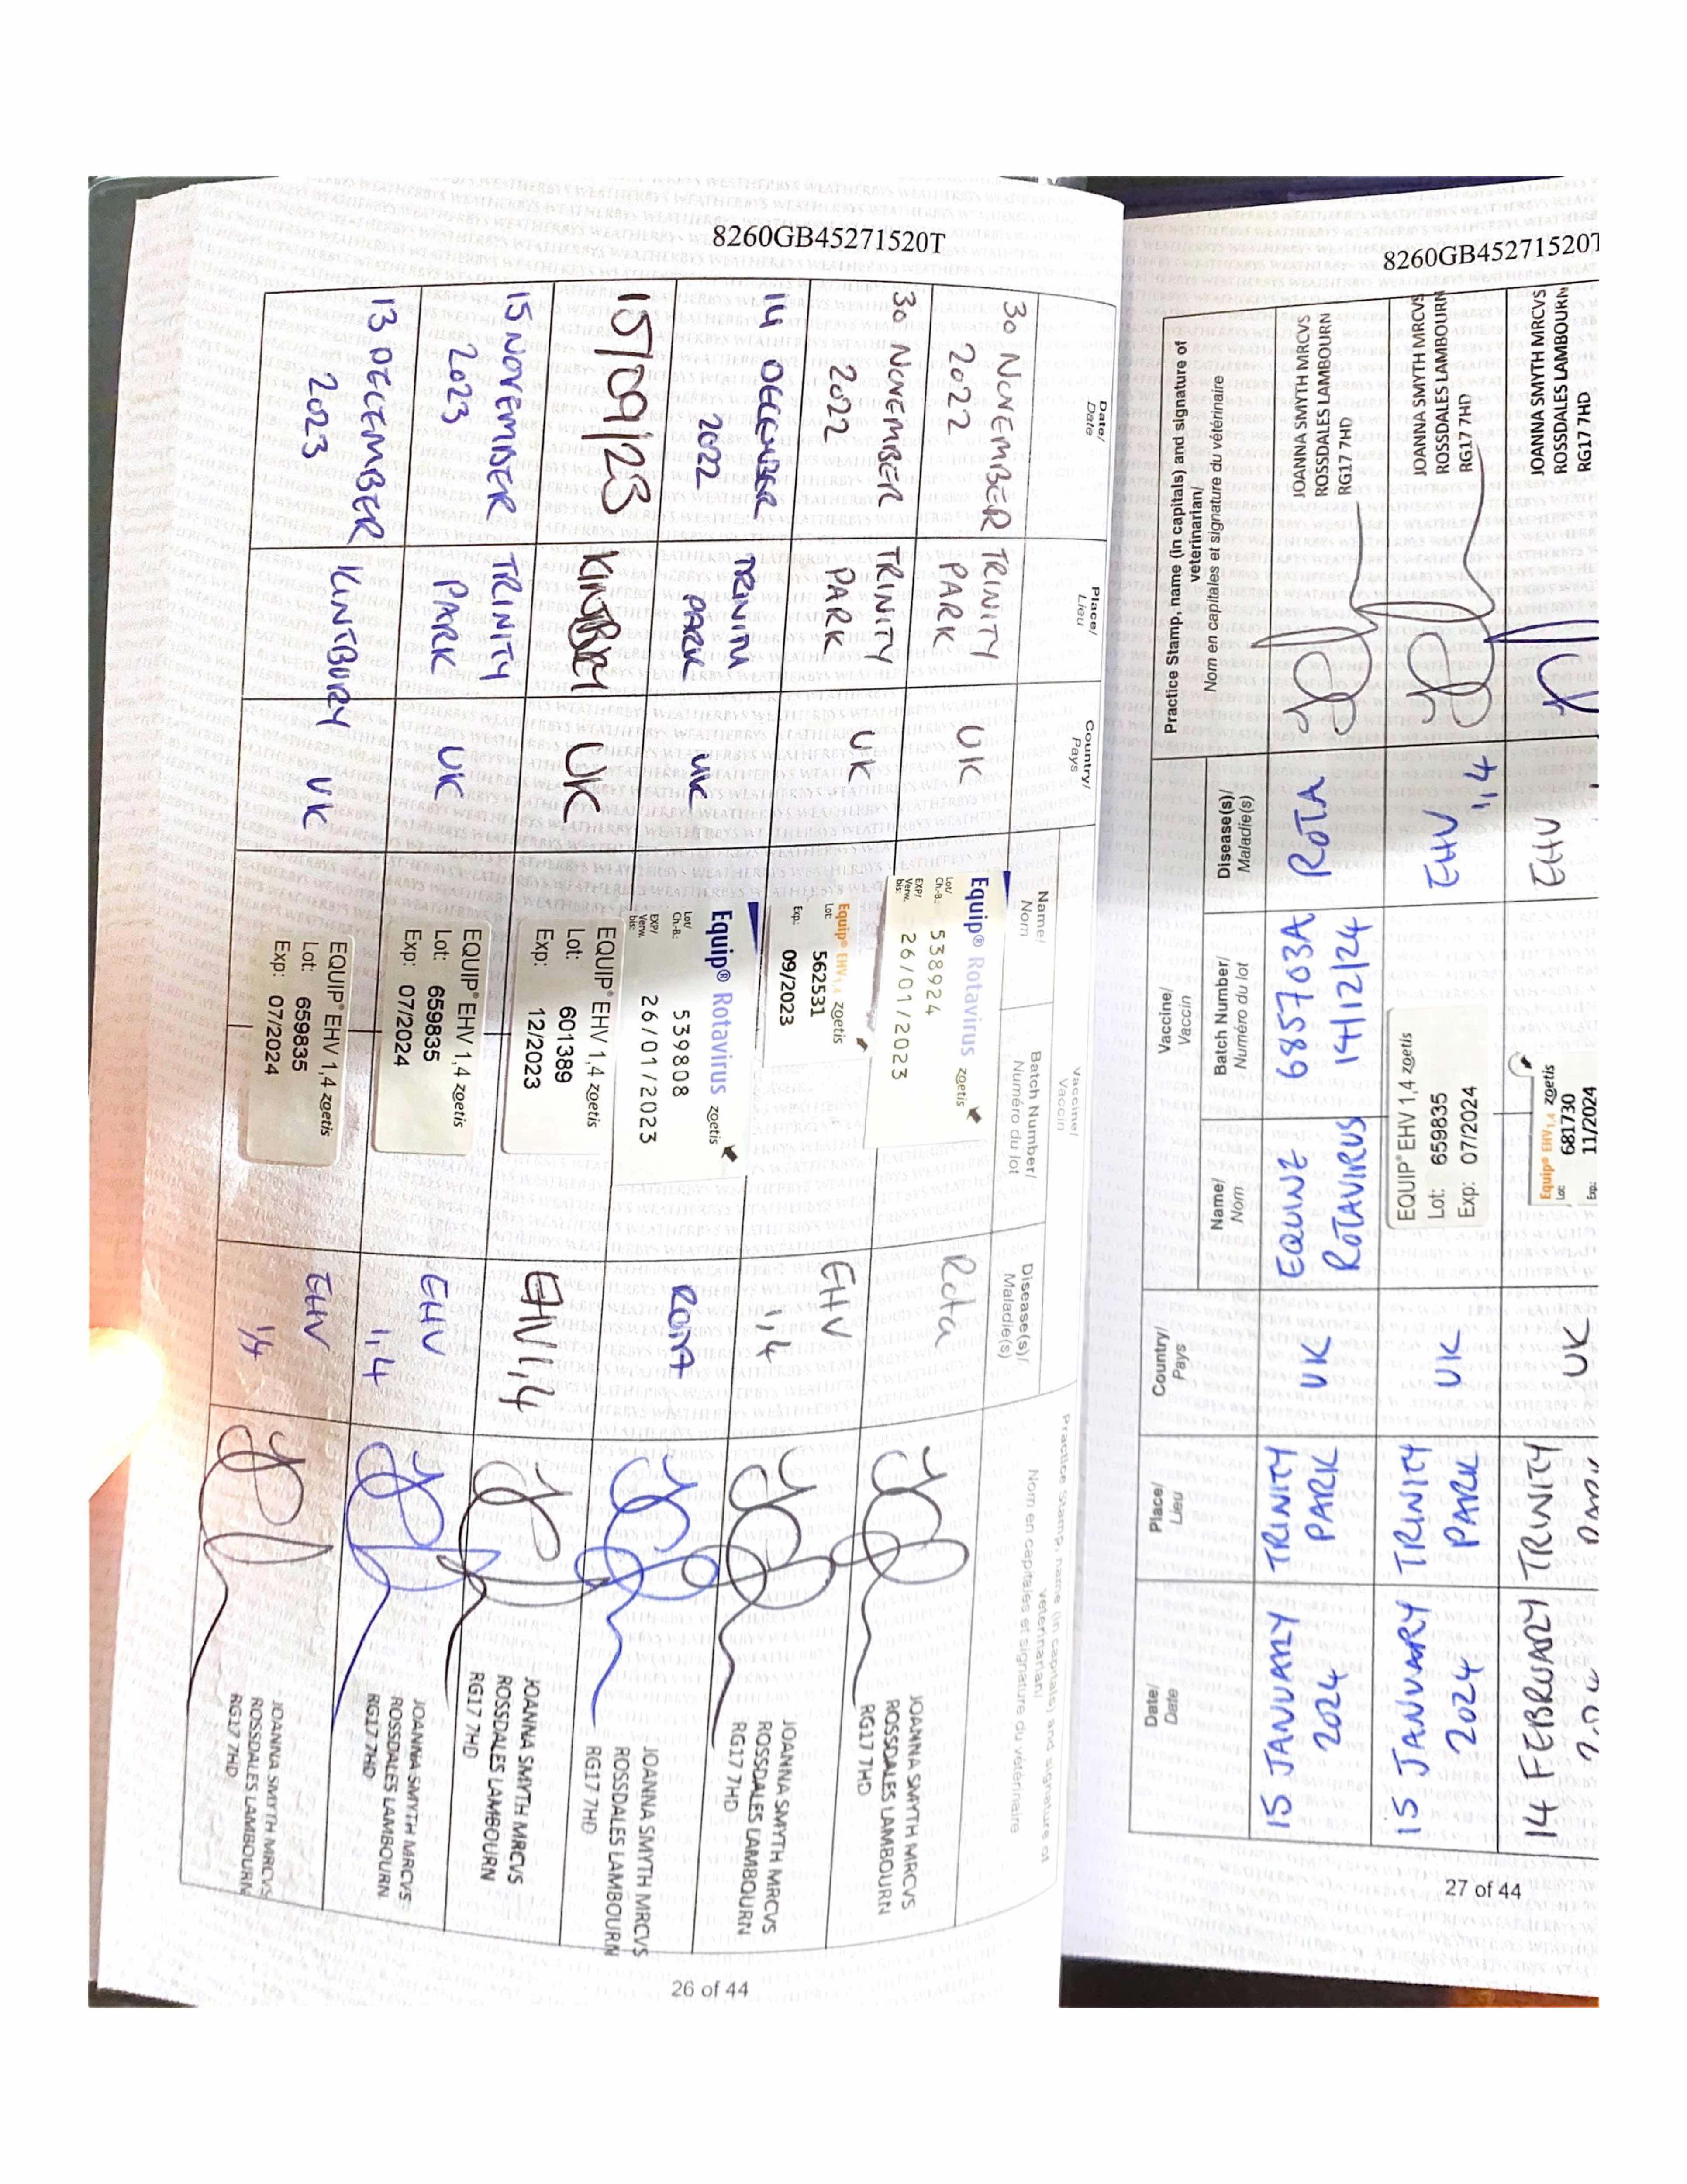 8260GB45271520T
Date/
Date
Place/
Lieu
Country/
Pays
Vaccine/
Vaccin
Name/
Nom
Batch Number/
Numéro du lot
Disease(s)/
Maladie(s)
Practice Stamp, name (in capitals) and signature of
veterinarian/
Nom en capitales et signature du vétérinaire
30 NOVEMBER
2022
TRINITY
PARK
UK
Equip® Rotavirus zoetis
Lot/
Ch.-B.: 538924
EXP/
Verw.
bis: 26/01/2023
Rota
JOANNA SMYTH MRCVS
ROSSDALES LAMBOURN
RG17 7HD
30 NOVEMBER
2022
TRINITY
PARK
UK
Equip® EHV1,4 zoetis
Lot: 562531
Exp: 09/2023
EHV
1,4
JOANNA SMYTH MRCVS
ROSSDALES LAMBOURN
RG17 7HD
14 DECEMBER
2022
TRINITY
PARK
UK
Equip® Rotavirus zoetis
Lot/
Ch.-B.: 539808
EXP/
Verw.
bis: 26/01/2023
ROTA
JOANNA SMYTH MRCVS
ROSSDALES LAMBOURN
RG17 7HD
UK
EQUIP® EHV 1,4 zoetis
Lot: 601389
Exp: 12/2023
EHV1,4
JOANNA SMYTH MRCVS
ROSSDALES LAMBOURN
RG17 7HD
15 NOVEMBER
2023
TRINITY
PARK
UK
EQUIP® EHV 1,4 zoetis
Lot: 659835
Exp: 07/2024
EHV
1,4
JOANNA SMYTH MRCVS
ROSSDALES LAMBOURN
RG17 7HD
13 DECEMBER
2023
KINTBURY
UK
EQUIP® EHV 1,4 zoetis
Lot: 659835
Exp: 07/2024
EHV
1/4
JOANNA SMYTH MRCVS
ROSSDALES LAMBOURN
RG17 7HD
26 of 44
8260GB45271520T
Date/
Date
Place/
Lieu
Country/
Pays
Vaccine/
Vaccin
Name/
Nom
Batch Number/
Numéro du lot
Disease(s)/
Maladie(s)
Practice Stamp, name (in capitals) and signature of
veterinarian/
Nom en capitales et signature du vétérinaire
15 JANUARY
2024
TRINITY
PARK
UK
EQUINE
ROTAVIRUS
685703A
14/12/24
ROTA
JOANNA SMYTH MRCVS
ROSSDALES LAMBOURN
RG17 7HD
15 JANUARY
2024
TRINITY
PARK
UK
EQUIP® EHV 1,4 zoetis
Lot: 659835
Exp: 07/2024
EHV
1,4
JOANNA SMYTH MRCVS
ROSSDALES LAMBOURN
RG17 7HD
14 FEBRUARY
TRINITY
UK
Equip® EHV1,4 zoetis
Lot: 681730
Exp: 11/2024
EHV
JOANNA SMYTH MRCVS
ROSSDALES LAMBOURN
RG17 7HD
27 of 44